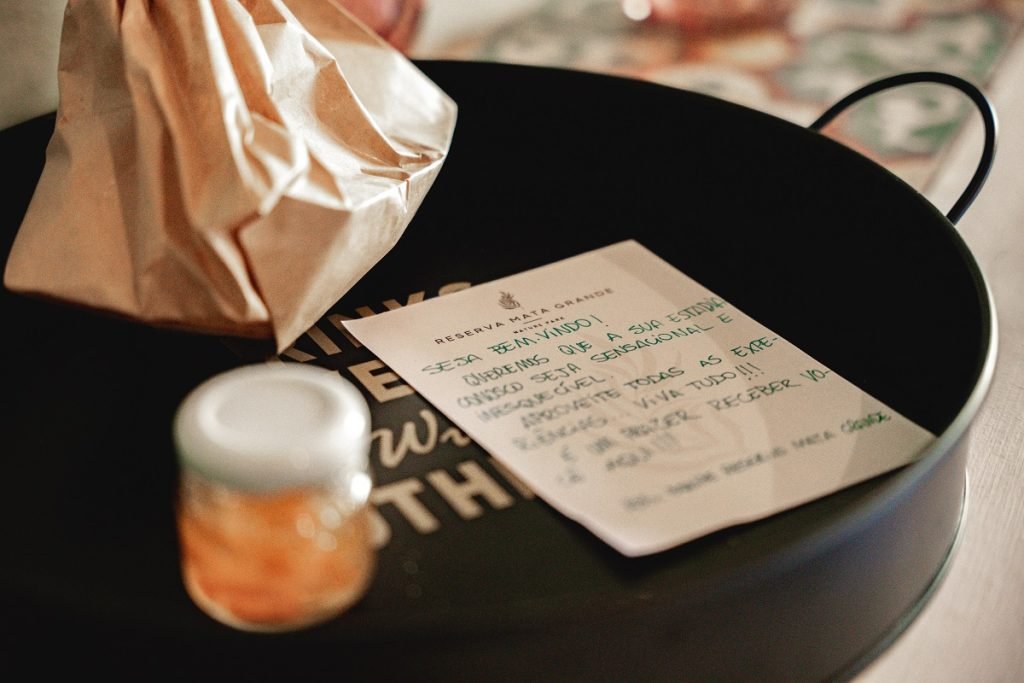 RESERVA MATA GRANDE
NATURE PARK
SEJA BEM-VINDO!
QUEREMOS QUE A SUA ESTADIA
CONOSCO SEJA SENSACIONAL E
INESQUECÍVEL.
APROVEITE TODAS AS EXPE-
RIÊNCIAS. VIVA TUDO!!!
É UM PRAZER RECEBER VO-
CÊ AQUI!!!
MATA GRANDE
Wi
OTH